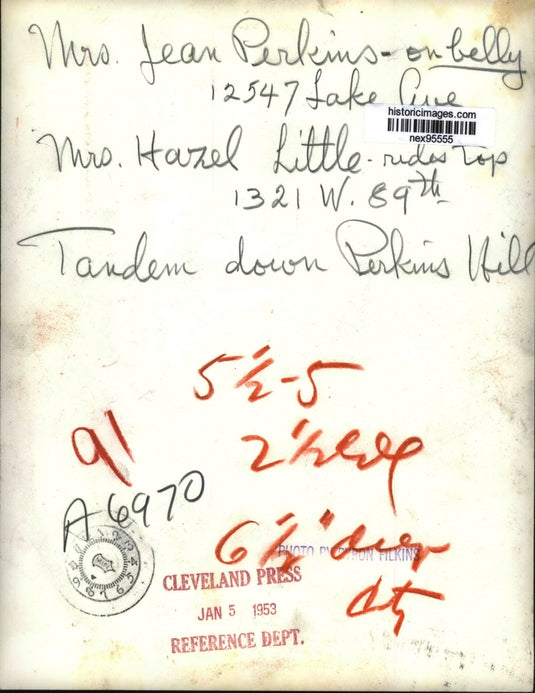 Mrs. Jean Perkins - on belly
12547 Lake Ave
historicimages.com
nex95555
Mrs. Hazel Little - rides Top
1321 W. 89th
Tandem down Perkins Hill
5 1/2 - 5
2 1/2
91
A6970
6 1/2" deep
PHOTO BY BYRON FILKINS
CLEVELAND PRESS
cty
JAN 5 1953
REFERENCE DEPT.